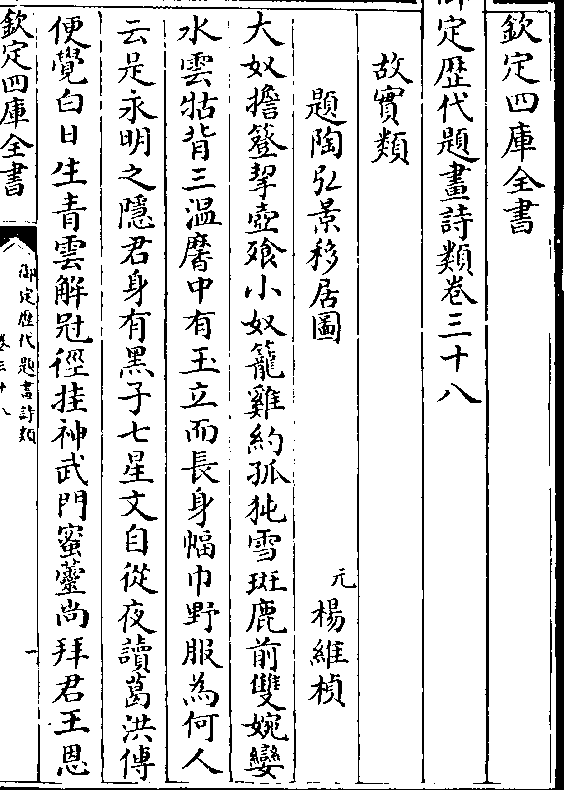 欽定四庫全書
御定歴代題畫詩類卷三十八
故實類
題陶弘景移居圖
元楊維楨
大奴擔簦挈壺飱小奴籠雞約孤㹠雪斑鹿前雙婉孌
水雲牯背三溫黁中有玉立而長身幅巾野服為何人
云是永明之隱君身有黑子七星文自從夜讀葛洪傳
便覺白日生青雲解冠徑挂神武門蜜虀尚拜君王恩
欽定四庫全書
御定歴代題畫詩類
卷三十八
一